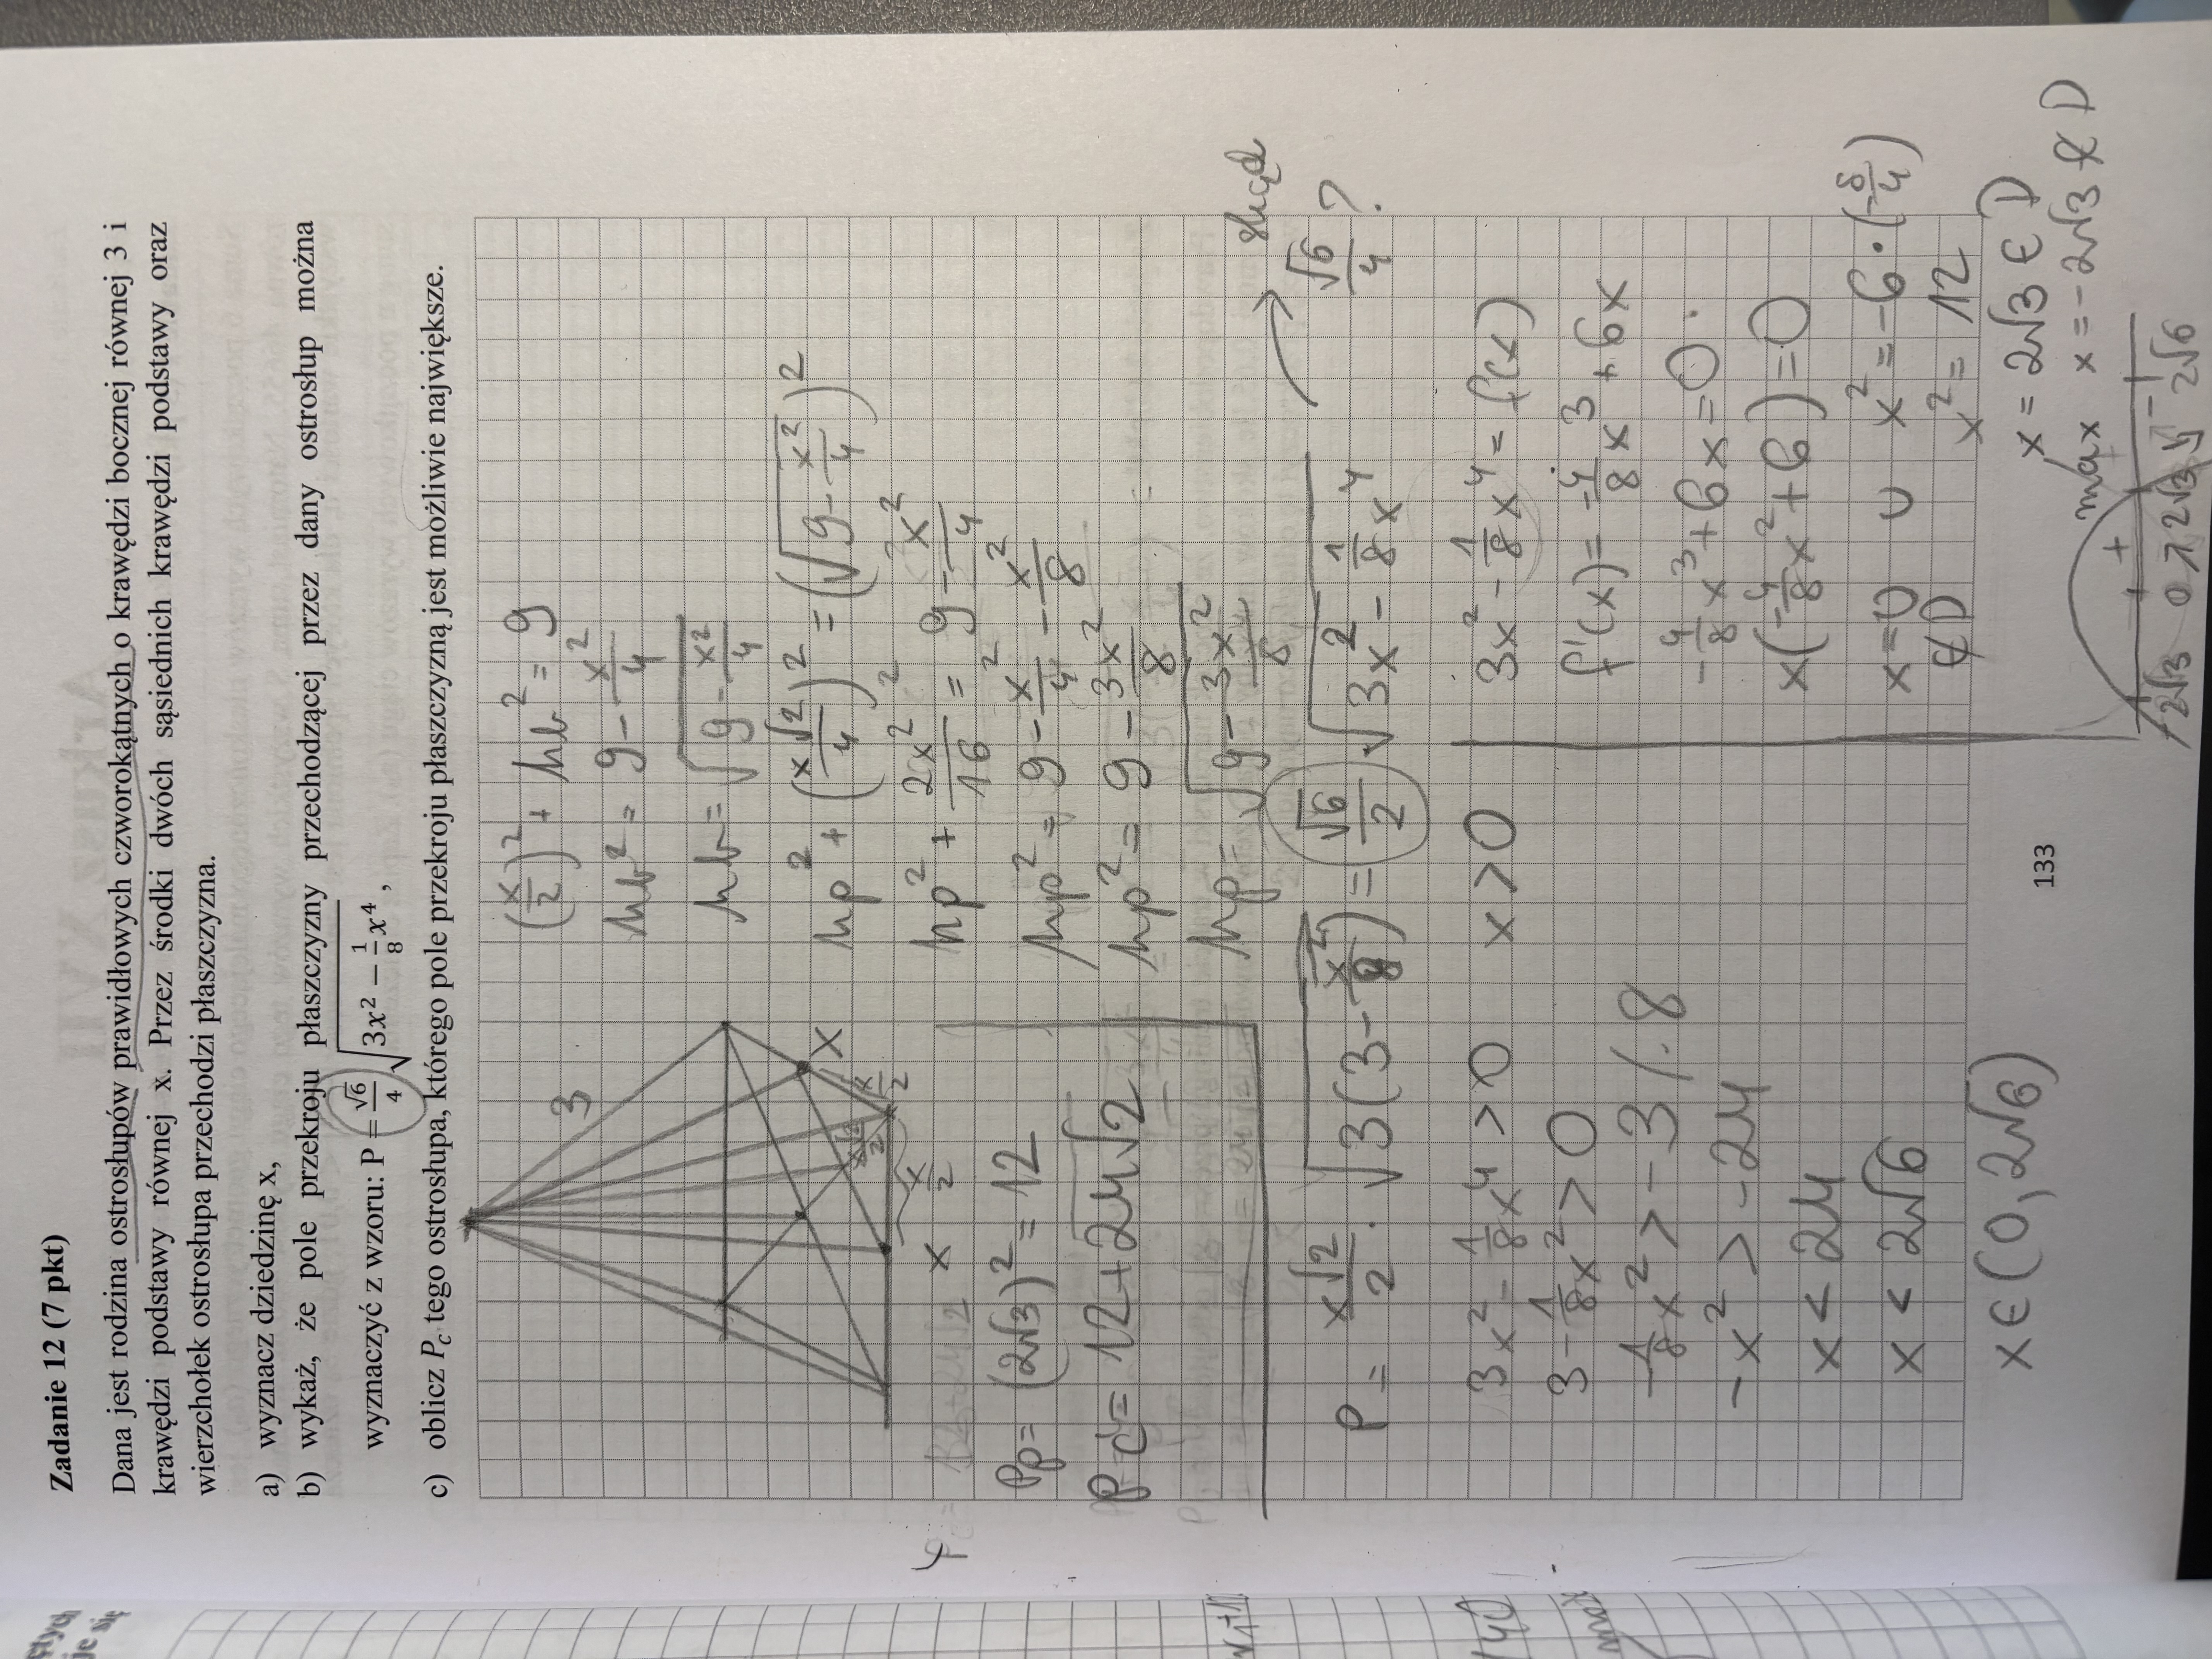 Zadanie 12 (7 pkt)
Dana jest rodzina ostrosłupów prawidłowych czworokątnych o krawędzi bocznej równej 3 i
krawędzi podstawy równej x. Przez środki dwóch sąsiednich krawędzi podstawy oraz
wierzchołek ostrosłupa przechodzi płaszczyzna.
a) wyznacz dziedzinę x,
b) wykaż, że pole przekroju płaszczyzny przechodzącej przez dany ostrosłup można
wyznaczyć z wzoru: P = √6/4 √(3x² − 1/8 x⁴) ,
c) oblicz P_c tego ostrosłupa, którego pole przekroju płaszczyzną jest możliwie największe.
3
x
x/2
x√2/2
x/2
x
Pp = (2√3)² = 12
Pc = 12 + 24√2
(x/2)² + hb² = 9
hb² = 9 - x²/4
hb = √(9 - x²/4)
hp² + (x√2/4)² = (√(9 - x²/4))²
hp² + 2x²/16 = 9 - x²/4
hp² = 9 - x²/4 - x²/8
hp² = 9 - 3x²/8
hp = √(9 - 3x²/8)
P = x√2/2 · √(3(3 - x²/8)) = √6/2 √(3x² - 1/8 x⁴)
skąd
√6/4 ?
3x² - 1/8 x⁴ > 0 x > 0
3 - 1/8 x² > 0
-1/8 x² > -3 /·8
-x² > -24
x < 24
x < 2√6
x ∈ (0, 2√6)
3x² - 1/8 x⁴ = f(x)
f'(x) = -4/8 x³ + 6x
-4/8 x³ + 6x = 0
x(-4/8 x² + 6) = 0
x = 0 ∪ x² = -6 · (-8/4)
∉ D x² = 12
x = 2√3 ∈ D
max x = -2√3 ∉ D
+ + -
-2√3 0 ↗ 2√3 ↘ 2√6
133